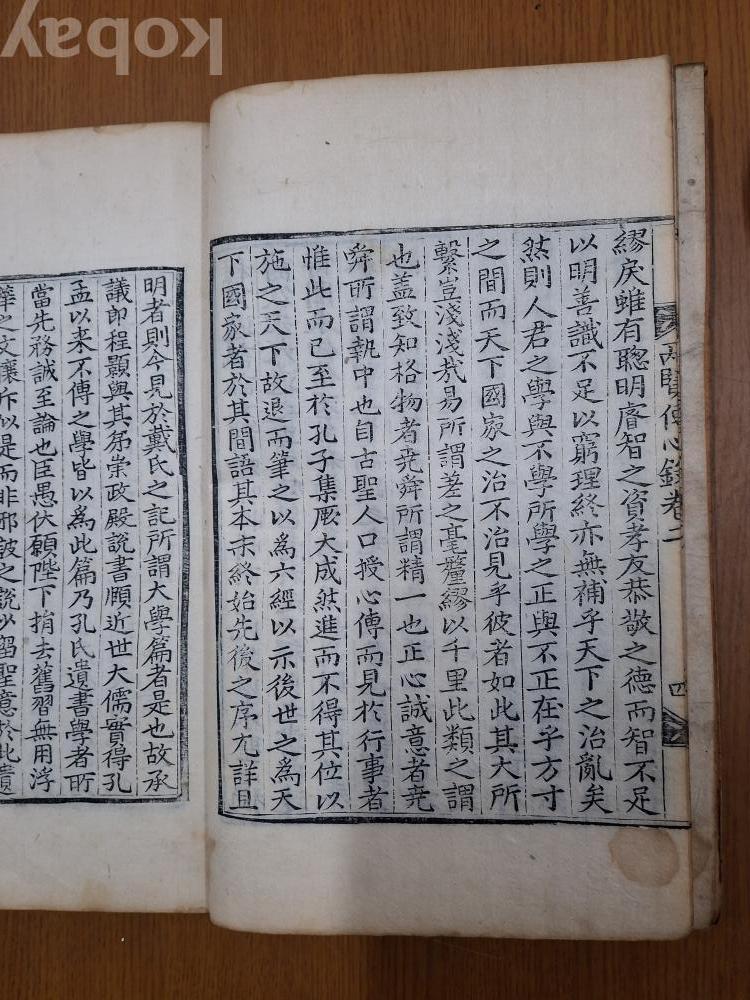 kobay
兩賢傳心錄卷二
四
繆戾雖有聰明睿智之資孝友恭敬之德而智不足
以明善識不足以窮理終亦無補乎天下之治亂矣
然則人君之學與不學所學之正與不正在乎方寸
之間而天下國家之治不治見乎彼者如此其大所
繫豈淺淺㢤易所謂差之毫釐繆以千里此類之謂
也盖致知格物者堯舜所謂精一也正心誠意者堯
舜所謂執中也自古聖人口授心傳而見於行事者
惟此而已至於孔子集厥大成然進而不得其位以
施之天下故退而筆之以爲六經以示後世之爲天
下國家者於其間語其本末終始先後之序尤詳且
明者則今見於戴氏之記所謂大學篇者是也故承
議郎程顥與其弟崇政殿說書頤近世大儒實得孔
孟以来不傳之學皆以爲此篇乃孔氏遺書學者所
當先務誠至論也臣愚伏願陛下捐去舊習無用浮
華之文攘斥似是而非邪詖之說少留聖意於此遺